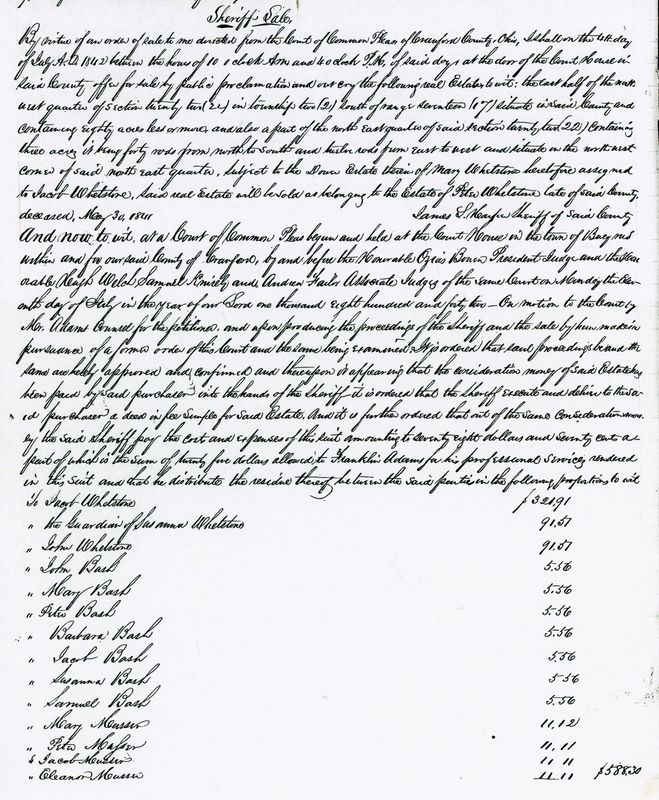 Sheriff Sale,
By virtue of an order of sale to me directed from the Court of Common Pleas of Crawford County, Ohio, I shall on the day
of July A.D. 1842 between the hours of 10 o'clock A.m and 4 o'clock P.M. of said day at the door of the Court House in
said County offer for sale by public proclamation and out cry the following real Estate to wit: the East half of the north
west quarter of Section twenty two (22) in township two (2) south of range seventeen (17) situate in said County and
containing eighty acres less or more, and also a part of the north east quarter of said section twenty two (22) containing
three acres it being forty rods from north to South and twelve rods from east to west and situate in the north west
corner of said north east quarter, subject to the Dower Estate therein of Mary Whetstone heretofore assigned
to Jacob Whetstone, said real Estate will be sold as belonging to the Estate of Peter Whetstone late of said County,
deceased, May 30, 1841 James S. Sheriff of Said County
And now to wit, at a Court of Common Pleas begun and held at the Court House in the town of Bucyrus
within and for our said County of Crawford, by and before the Honorable Ozias Bowen President Judge and the Hon
orable Hugh Welch Samuel Knisely and Andrew Failor Associate Judges of the same Court on Monday the Elev
enth day of July in the year of our Lord one thousand Eight hundred and forty two — On motion to the Court by
Mr. Adams Counsel for the petitioner, and upon producing the proceedings of the Sheriff and the sale by him made in
pursuance of a former order of this Court and the same being examined It is ordered that said proceedings be and the
same are hereby approved and confirmed and thereupon it appearing that the consideration money of said Estate has
been paid by said purchaser into the hands of the Sheriff it is ordered that the Sheriff execute and deliver to the sa
id purchaser a deed in fee Simple for said Estate. And it is further ordered that out of the same consideration mon
ey the said Sheriff pay the cost and expenses of this suit amounting to seventy eight dollars and seventy cents a
part of which is the sum of twenty five dollars allowed to Franklin Adams for his professional services rendered
in this suit and that he distribute the residue thereof between the said parties in the following proportions to wit
To Jacob Whetstone $321.91
" the Guardian of Susanna Whetstone 91.57
" John Whetstone 91.57
" John Bash 5.56
" Mary Bash 5.56
" Peter Bash 5.56
" Barbara Bash 5.56
" Jacob Bash 5.56
" Susanna Bash 5.56
" Samuel Bash 5.56
" Mary Musser 11.12
" Peter Musser 11.11
" Jacob Musser 11 11
" Eleanor Musser 11 11 $588.30